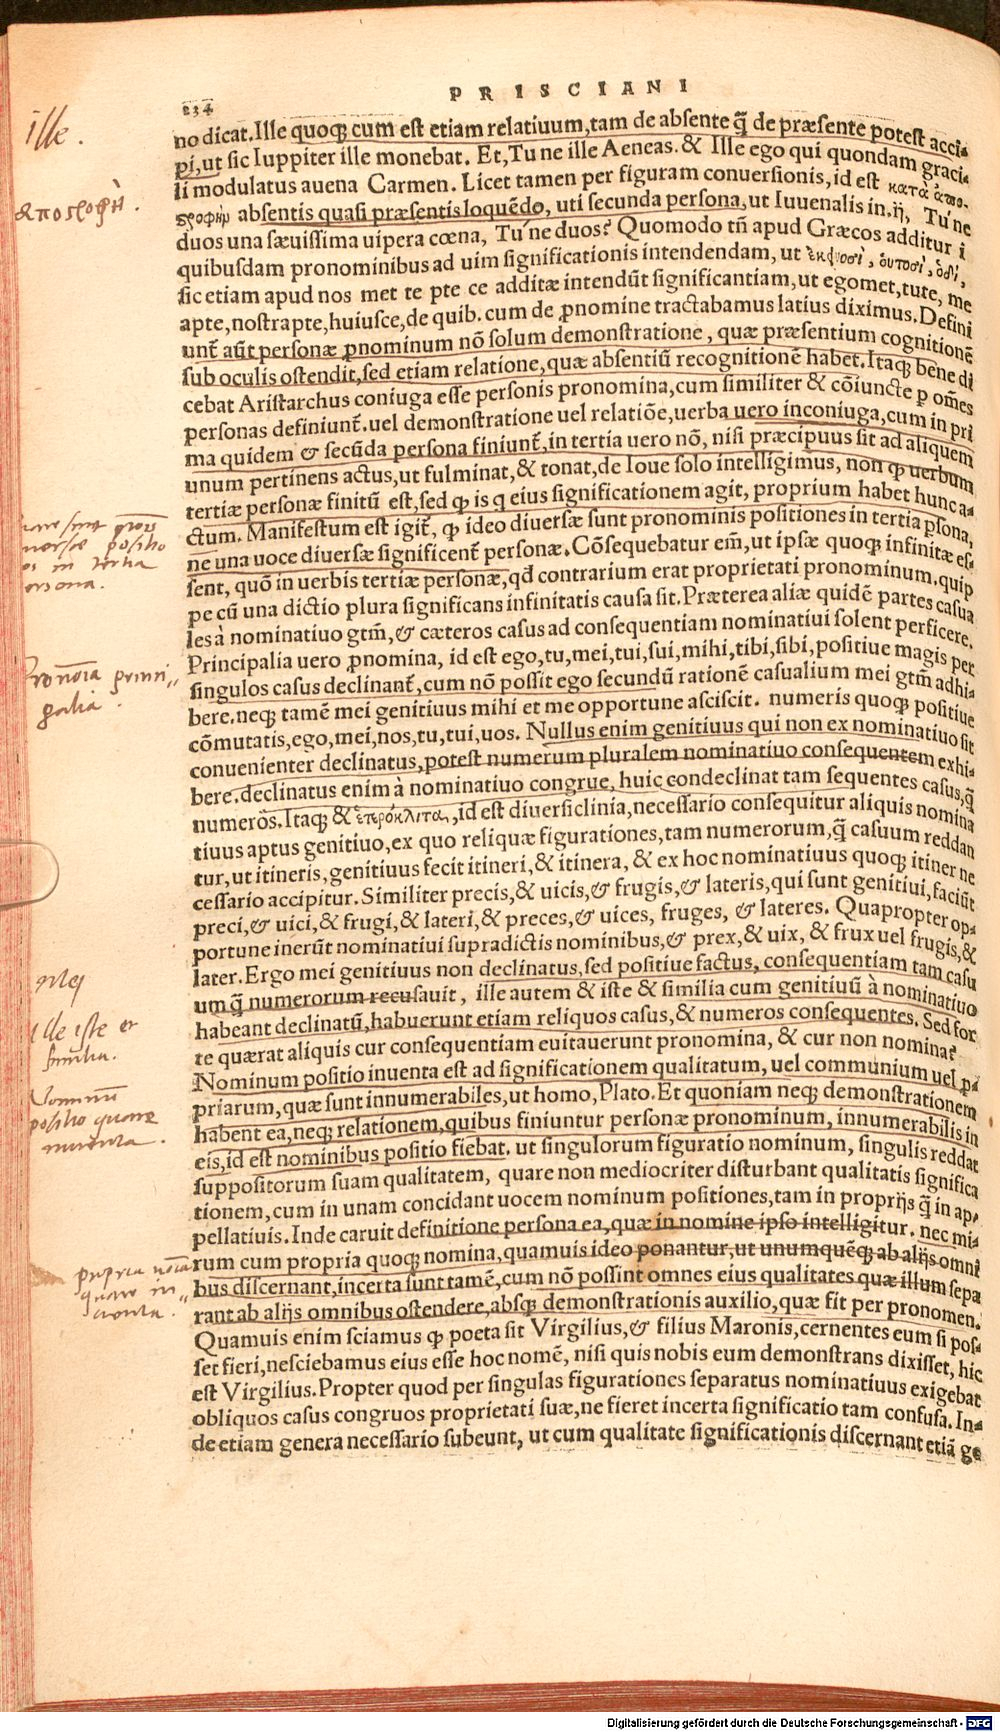 PRISCIANI
234
no dicat. Ille quoqꝫ cum est etiam relatiuum, tam de absente q̃ de præsente potest acci-
pi, ut sic Iuppiter ille monebat. Et, Tu ne ille Aeneas. & Ille ego qui quondam graci-
li modulatus auena Carmen. Licet tamen per figuram conuersionis, id est κατὰ ἀπο-
ϛροφὴμ absentis quasi præsentis loquẽdo, uti secunda persona, ut Iuuenalis in. ij, Tu'ne
duos una sæuissima uipera cœna, Tu'ne duos? Quomodo tñ apud Græcos additur i
quibusdam pronominibus ad uim significationis intendendam, ut ἐκεινοσὶ, οὑτοσὶ, ὁδὶ,
sic etiam apud nos met te pte ce additæ intendũt significantiam, ut egomet, tute, me
apte, nostrapte, huiusce, de quib. cum de ꝓnomine tractabamus latius diximus. Defini
unt̃ aũt personæ ꝓnominum nõ solum demonstratione, quæ præsentium cognitionẽ
sub oculis ostendit, sed etiam relatione, quæ absentiũ recognitionẽ habet. Itaqꝫ bene di
cebat Aristarchus coniuga esse personis pronomina, cum similiter & cõiuncte p om̃es
personas definiunt̃. uel demonstratione uel relatiõe, uerba uero inconiuga, cum in pri
ma quidem & secũda persona finiunt̃, in tertia uero nõ, nisi præcipuus sit ad aliquem
unum pertinens actus, ut fulminat, & tonat, de Ioue solo intelligimus, non ꝙ uerbum
tertiæ personæ finitũ est, sed ꝙ is q eius significationem agit, proprium habet hunc a-
ctum. Manifestum est igit̃, ꝙ ideo diuersæ sunt pronominis positiones in tertia p̱sona,
ne una uoce diuersæ significent̃ personæ. Cõsequebatur em̃, ut ipsæ quoqꝫ infinitæ es-
sent, quõ in uerbis tertiæ personæ, qđ contrarium erat proprietati pronominum. quip
pe cũ una dictio plura significans infinitatis causa sit. Præterea aliæ quidẽ partes casua
les à nominatiuo gtm̃, & cæteros casus ad consequentiam nominatiui solent perficere.
Principalia uero ꝓnomina, id est ego, tu, mei, tui, sui, mihi, tibi, sibi, positiue magis per
singulos casus declinant̃, cum nõ possit ego secundũ rationẽ casualium mei gtm̃ adhi-
bere. neqꝫ tamẽ mei genitiuus mihi et me opportune asciscit. numeris quoqꝫ positiue
cõmutatis, ego, mei, nos, tu, tui, uos. Nullus enim genitiuus qui non ex nominatiuo sit
conuenienter declinatus, potest numerum pluralem nominatiuo consequentem exhi-
bere. declinatus enim à nominatiuo congrue, huic condeclinat tam sequentes casus, q̃
numeros. Itaqꝫ & ἑτερόκλιτα, id est diuersiclinia, necessario consequitur aliquis nomina
tiuus aptus genitiuo, ex quo reliquæ figurationes, tam numerorum, q̃ casuum reddan
tur, ut itineris, genitiuus fecit itineri, & itinera, & ex hoc nominatiuus quoqꝫ itiner ne
cessario accipitur. Similiter precis, & uicis, & frugis, & lateris, qui sunt genitiui, faciũt
preci, & uici, & frugi, & lateri, & preces, & uices, fruges, & lateres. Quapropter op-
portune inerũt nominatiui supradictis nominibus, & prex, & uix, & frux uel frugis, &
later. Ergo mei genitiuus non declinatus, sed positiue factus, consequentiam tam casu
um q̃ numerorum recusauit, ille autem & iste & similia cum genitiuũ à nominatiuo
habeant declinatũ, habuerunt etiam reliquos casus, & numeros consequentes. Sed for
te quærat aliquis cur consequentiam euitauerunt pronomina, & cur non nomina?
Nominum positio inuenta est ad significationem qualitatum, uel communium uel ꝓ-
priarum, quæ sunt innumerabiles, ut homo, Plato. Et quoniam neqꝫ demonstrationem
habent ea, neqꝫ relationem, quibus finiuntur personæ pronominum, innumerabilis in
eis, id est nominibus positio fiebat. ut singulorum figuratio nominum, singulis reddat
suppositorum suam qualitatem, quare non mediocriter disturbant qualitatis significa
tionem, cum in unam concidant uocem nominum positiones, tam in proprijs q̃ in ap-
pellatiuis. Inde caruit definitione persona ea, quæ in nomine ipso intelligitur. nec mi-
rum cum propria quoqꝫ nomina, quamuis ideo ponantur, ut unumquẽqꝫ ab alijs omni
bus discernant, incerta sunt tamẽ, cum nõ possint omnes eius qualitates quæ illum sepa
rant ab alijs omnibus ostendere, absqꝫ demonstrationis auxilio, quæ fit per pronomen.
Quamuis enim sciamus ꝙ poeta sit Virgilius, & filius Maronis, cernentes eum si pos-
set fieri, nesciebamus eius esse hoc nomẽ, nisi quis nobis eum demonstrans dixisset, hic
est Virgilius. Propter quod per singulas figurationes separatus nominatiuus exigebat
obliquos casus congruos proprietati suæ, ne fieret incerta significatio tam confusa. In-
de etiam genera necessario subeunt, ut cum qualitate significationis discernant etiã ge
ille.
positio
in tertia
principalia.
mei
Ille iste et
similia.
Nominum
positio quare
inuenta.
propria noĩa
quare in-
certa.
Digitalisierung gefördert durch die Deutsche Forschungsgemeinschaft - DFG